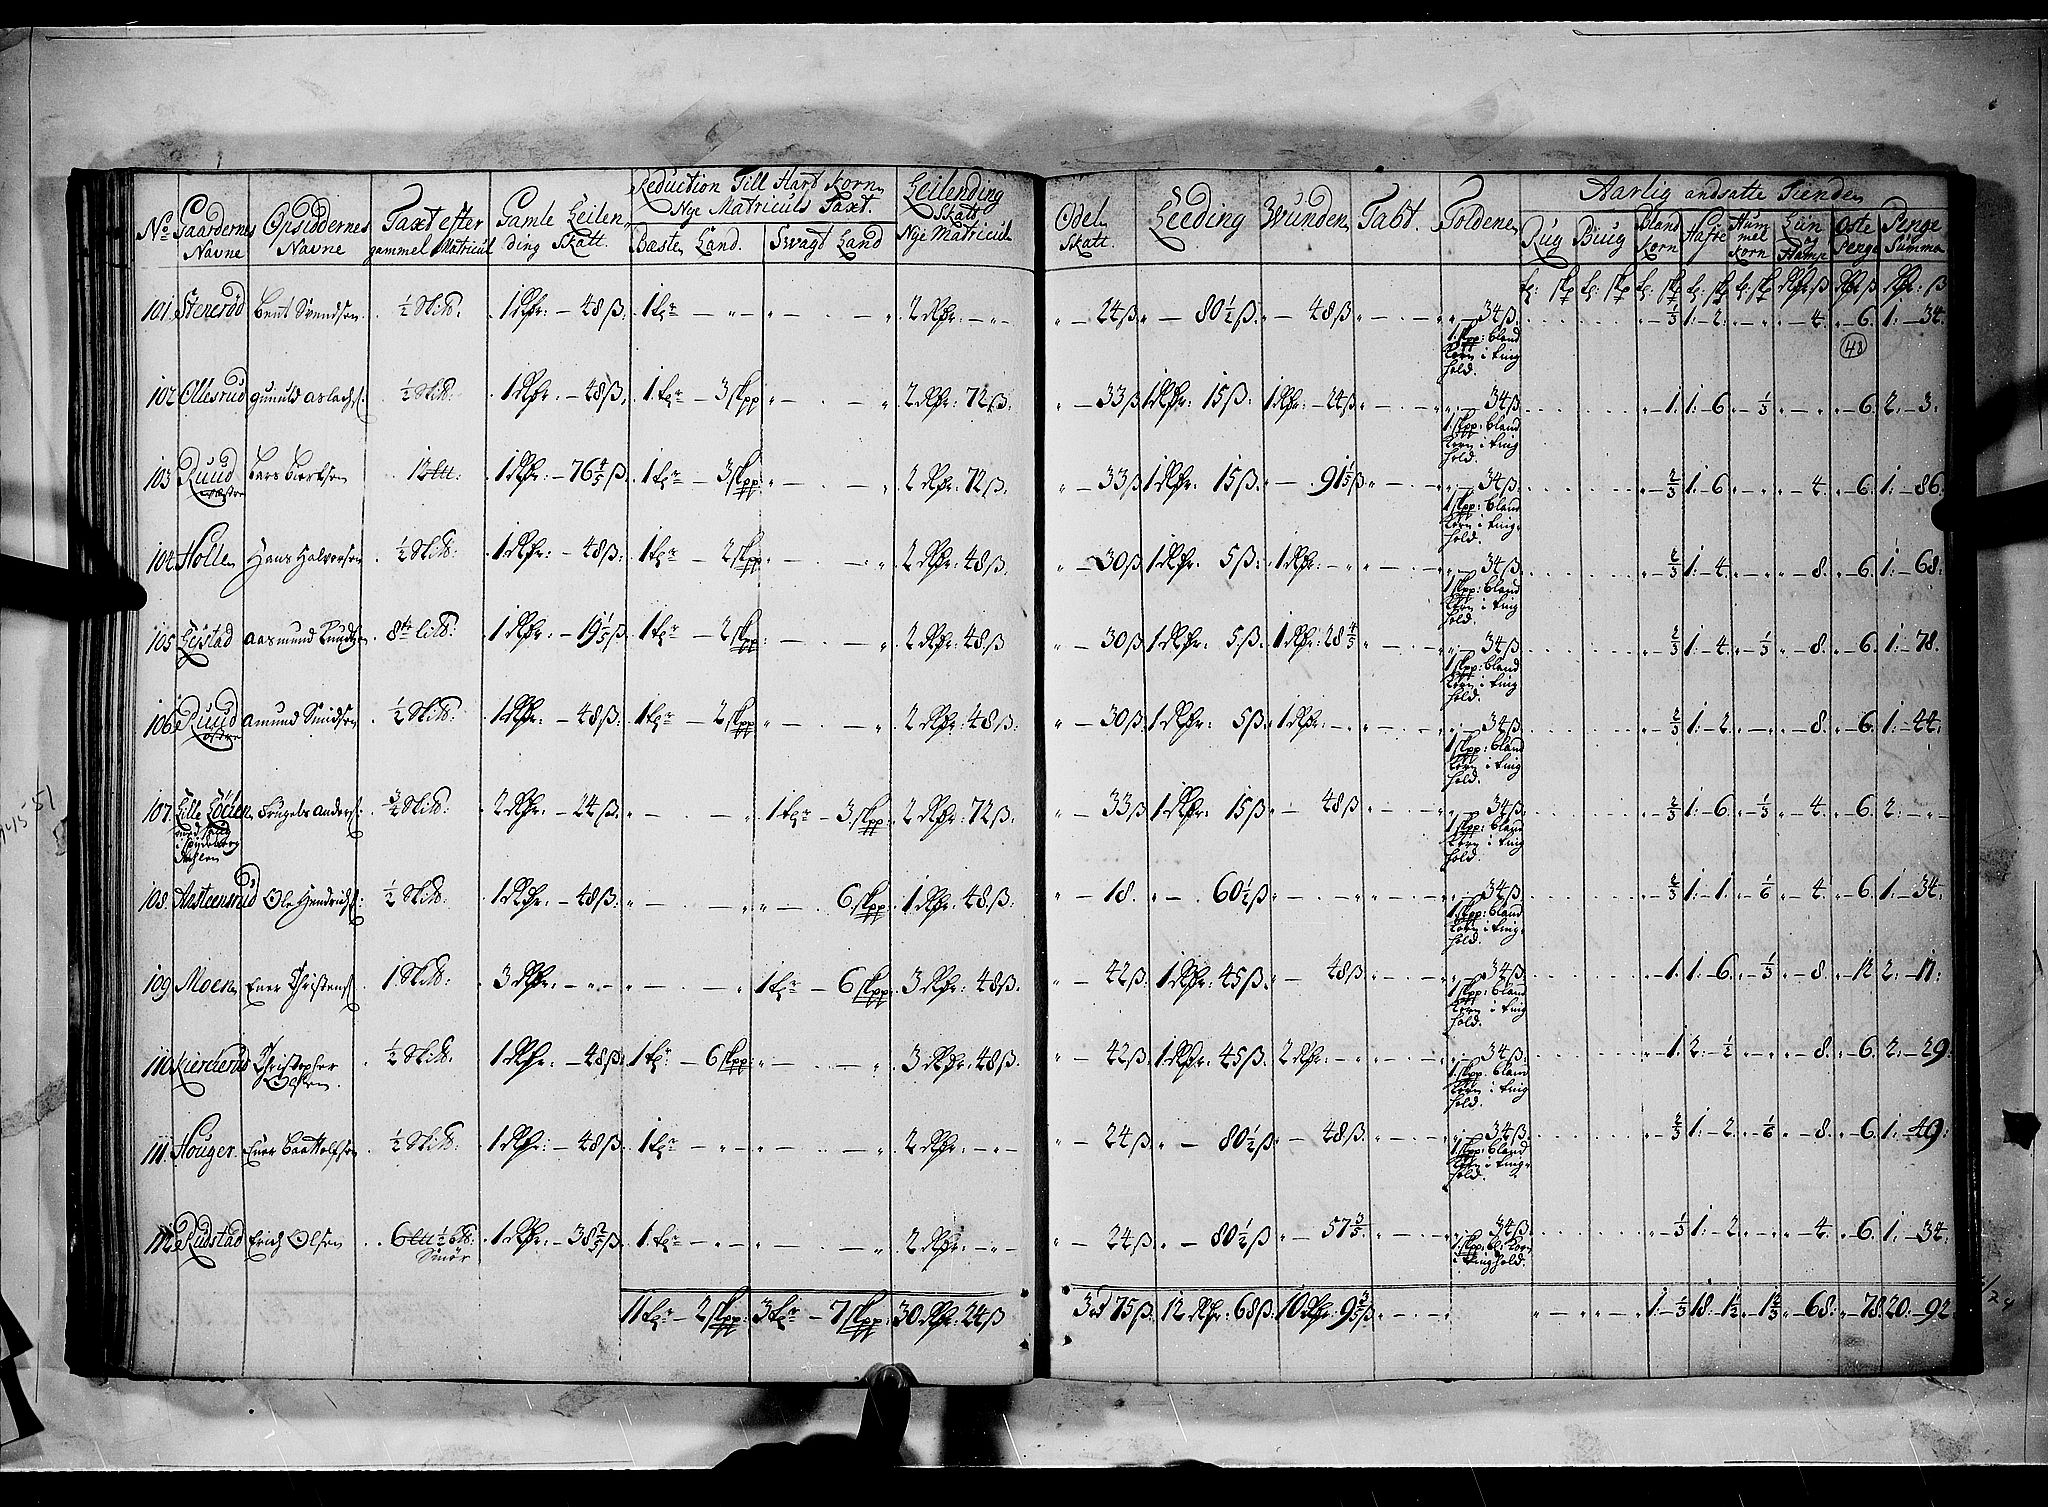 No Gaardernes Navne | Opsiddernes Navne | Taxt efter gammel Matricul | Gamle Leilending Skatt. | Reduction Till Hart Korn Nye Matriculs Taxt. | Leilending Skatt Nye Matricul
Bæste Land. | Svagt Land
Odels Skatt. | Leeding | Wunden | Tabt. | Toldene | Aarlig andsatte Tiender
Rug | Biug | Bland Korn | Hafre | Hummel Korn | Liin og Hamp | Oste Penge | Penge Summa
101. Stenerød Bent Svendsen. ½ Skid. 1 Rdr: – 48 ß. 1 tr – 2 Rdr: – 24 ß. – 80½ ß. – 48 ß. 34 ß. 1 skpp: bland Korn i tinghold. ⅓ 1: – 2. – 4. – 6. 1: – 34.
48
102 Ollesrud Gunuld Aslachs. ½ Skid. 1 Rdr: – 48 ß. 1 tr – 3 skpp 2 Rdr: 72 ß. – 33 ß 1 Rdr: 15 ß. 1 Rdr: 24 ß 34 ß. 1 skpp: bland Korn i tinghold. 1. 1: – 6 ⅓ – 6. 2. – 3.
103 Ruud westre Lars 1 1 Rdr: – 76⅘ ß. 1 tr – 3 skpp 2 Rdr: 72 ß. – 33 ß 1 Rdr: 15 ß. – 91⅕ ß 34 ß. 1 skpp: bland Korn i tinghold. ⅔ 1: – 6 – 4. – 6. 1: – 86.
104 Holle Hans Halvorsen ½ Skid. 1 Rdr: – 48 ß. 1 tr – 2 skpp 2 Rdr: 48 ß. – 30 ß 1 Rdr: 5 ß. 1 Rdr: – 34 ß. 1 skpp: bland Korn i tinghold. ⅔ 1: – 4. – 8. – 6. 1: – 68.
105 Lejstad Aasmund Knudsen 1 Rdr: – 19⅕ ß. 1 tr – 2 skpp: 2 Rdr: 48 ß – 30 ß 1 Rdr: 5 ß. 1 Rdr: 28⅘ 34 ß. 1 skpp: bland Korn i tinghold. ⅔ 1: – 4. ⅓ – 8. – 6. 1: – 78.
106 Ruud østre Amund Smidsen ½ Skid. 1 Rdr: – 48 ß. 1 tr – 2 skpp 2 Rdr: 48 ß. – 30 ß 1 Rdr: 5 ß. 1 Rdr: – 34 ß. 1 skpp: bland Korn i tinghold. ⅔ 1: – 2. – 8. – 6. 1: – 44.
107. Lille Anders: Skid. 2 Rdr: – 24 ß. 1 tr – 3 skpp: 2 Rdr: 72 ß. – 33 ß 1 Rdr: 15 ß. – 48 ß. 34 ß. 1 skpp: bland Korn i tinghold. ⅔ 1: – 6 ⅓ – 4. – 6 2: –
108. Aasteensrud Ole Hendrichs: ½ Skid. 1 Rdr: – 48 ß. 6 skpp. 1 Rdr: 48 ß. – 18. – 60½ ß – 34 ß. 1 skpp: bland Korn i tinghold. ⅔ 1: – 1. ⅙ – 4. – 6 1: – 34.
109 Moen Ener Christens 1 Skid: 3 Rdr: – 1 tr – 6 skpp: 3 Rdr: 48 ß. – 42 ß. 1 Rdr: 45 ß. – 48 ß 34 ß. 1 skpp: bland Korn i tinghold. 1. 1: – 6. ⅓ – 8. – 12 2: – 11:
110. Christopher Olsen. ½ Skid. 1 Rdr: – 48 ß. 1 tr – 6 skpp: 3 Rdr: 48 ß. – 42 ß. 1 Rdr: 45 ß. 2 Rdr: – 34 ß. 1 skpp: bland Korn i tinghold. 1. 2: – ½ – 8. – 6. 2: – 29:
111. Houger. Ener ½ Skid. 1 Rdr: – 48 ß. 1 tr – 2 Rdr: – 24 ß. – 80½ ß – 48 ß. 34 ß. 1 skpp: bland Korn i tinghold. ⅔ 1: – 2 ⅙ – 8. – 6. 1: – 49:
112 Rudstad Erich Olsen 6 Smør 1 Rdr: – 38⅖ ß. 1 tr – 2 Rdr: – 24 ß. – 80½ ß – 57⅗. 34 ß. 1 skpp: bl: Korn i tinghold. ⅓ 1: – 2. – 4. – 6 1: – 34:
11 tr – 2 skpp: 3 tr – 7 skpp: 30 Rdr: 24 ß 3 75 ß. 12 Rdr: 68 ß. 10 Rdr: 9⅗ ß 1: – ⅓ 18: – 1½ – 68: – 78. 20: – 92